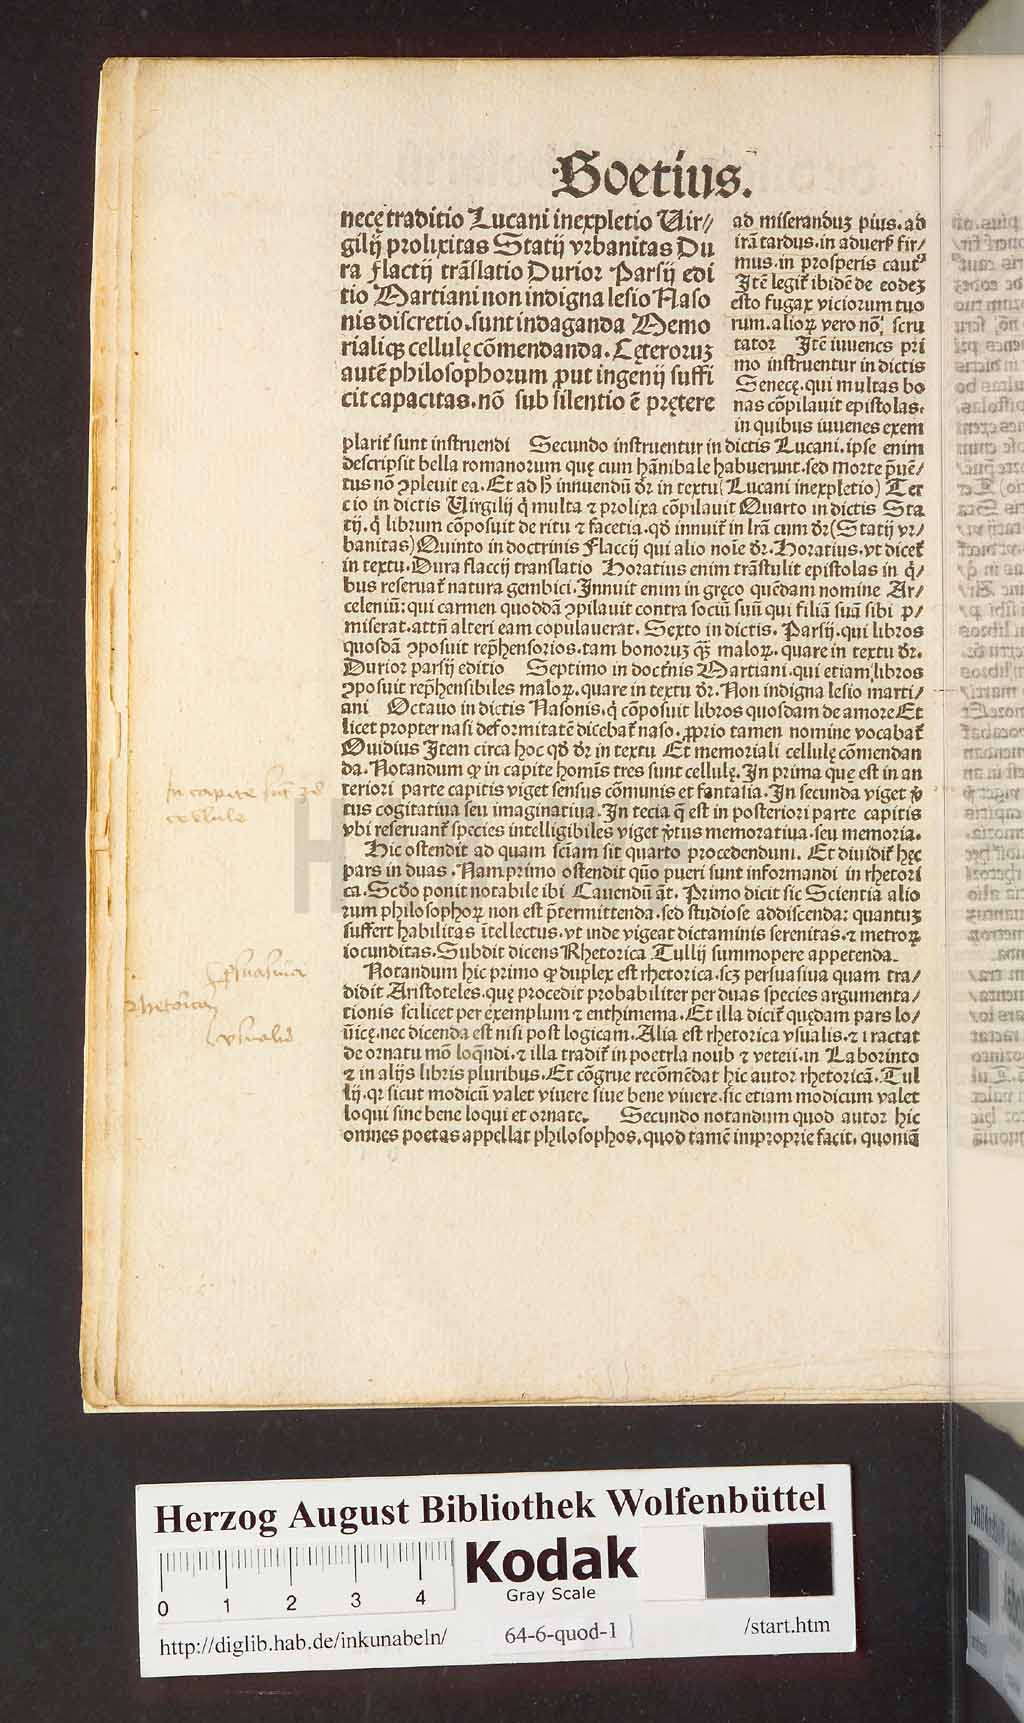 Boetius.
necę traditio Lucani inexpletio Uir//
gilij prolixitas Statij vrbanitas Du
ra flactij trãslatio Durior Parsij edi
tio Martiani non indigna lesio Naso
nis discretio. sunt indaganda Memo
rialiqꝫ cellulę cõmendanda. Cęteroruꝫ
autẽ philosophorum ꝓut ingenij suffi
cit capacitas. nõ sub silentio ẽ pręterе
ad miseranduꝫ pius. ad
irã tardus. in aduers̃ fir/
mus. in prosperis caut⁹
Itẽ legit̃ ibidẽ de eodeꝫ
esto fugax viciorum tuo
rum. alioꝝ vero nõ; scru
tator Itẽ iuuenes pri
mo instruentur in dictis
Senecę. qui multas bo
nas cõpilauit epistolas.
in quibus iuuenes exem
plarit̃ sunt instruendi Secundo instruentur in dictis Lucani. ipse enim
descripsit bella romanorum quę cum hãnibale habuerunt. sed morte p̃uẽ/
tus nõ ꝯpleuit ea. Et ad h̃ innuendũ dr̃ in textu (Lucani inexpletio) Ter
cio in dictis Uirgilij q̃ multa ⁊ prolixa cõpilauit Quarto in dictis Sta
tij. q̃ librum cõposuit de ritu ⁊ facetia. qd̃ innuit̃ in lr̃a cum dr̃ (Statij vr/
banitas) Quinto in doctrinis Flaccij qui alio noĩe dr̃. Horatius. vt dicet̃
in textu. Dura flaccij translatio Horatius enim trãstulit epistolas in q̃/
bus reseruat̃ natura gembici. Innuit enim in gręco quẽdam nomine Ar/
celeniũ: qui carmen quoddã ꝯpilauit contra sociũ suũ qui filiã suã sibi ꝓ/
miserat. attñ alteri eam copulauerat. Sexto in dictis. Parsij. qui libros
quosdã ꝯposuit repr̃hensorios. tam bonoruꝫ qꝫ̃ maloꝝ. quare in textu dr̃.
Durior parsij editio Septimo in doctr̃nis Martiani. qui etiam libros
ꝯposuit repr̃hensibiles maloꝝ. quare in textu dr̃. Non indigna lesio marti/
ani Octauo in dictis Nasonis. q̃ cõposuit libros quosdam de amore Et
licet propter nasi deformitatẽ dicebat̃ naso. ꝓprio tamen nomine vocabat̃
Ouidius Item circa hoc qd̃ dr̃ in textu Et memoriali cellulę cõmendan
da. Notandum ꝙ in capite homĩs tres sunt cellulę. In prima que est in an
teriori parte capitis viget sensus cõmunis et fantasia. In secunda viget v̾
tus cogitatiua seu imaginatiua. In tecia q̃ est in posteriori parte capitis
vbi reseruant̃ species intelligibiles viget v̾tus memoratiua. seu memoria.
Hic ostendit ad quam sciam̃ sit quarto procedendum. Et diuidit̃ hęc
pars in duas. Nam primo ostendit quo pueri sunt informandi in rhetori
ca. Scd̃o ponit notabile ibi Cauendũ at̃. Primo dicit sic Scientia alio
rum philosophoꝝ non est p̃termittenda. sed studiose addiscenda: quantuꝫ
suffert habilitas ĩtellectus. vt inde vigeat dictaminis serenitas. ⁊ metroꝝ
iocunditas. Subdit dicens Rhetorica Tullij summopere appetenda.
Notandum hic primo ꝙ duplex est rhetorica. scꝫ persuasiua quam tra/
didit Aristoteles. quę procedit probabiliter per duas species argumenta/
tionis scilicet per exemplum ⁊ enthimema. Et illa dicit̃ quędam pars lo/
ũicę. nec dicenda est nisi post logicam. Alia est rhetorica vsualis. ⁊ i ractat
de ornatu mõ loq̃ndi. ⁊ illa tradit̃ in poetria noub ⁊ veteri. in Laborinto
⁊ in alijs libris pluribus. Et cõgrue recõmẽdat hic autor rhetoricã. Tul
lij. qr sicut modicũ valet viuere siue bene viuere. sic etiam modicum valet
loqui sine bene loqui et ornate. Secundo notandum quod autor hic
omnes poetas appellat philosophos. quod tamẽ improprie facit. quoniã
In capite sut 3es
cellule
psuasiua
Rhetorica
vsualis
Herzog August Bibliothek Wolfenbüttel
Kodak
Gray Scale
0 1 2 3 4
http://diglib.hab.de/inkunabeln/ 64-6-quod-1 /start.htm